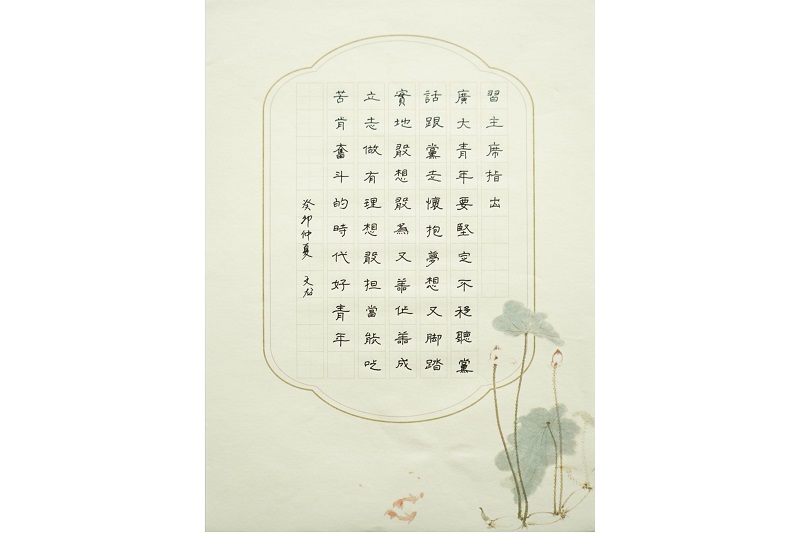 習主席指出
廣大青年要堅定不移聽黨
話跟黨走懷抱夢想又脚踏
實地敢想敢為又善作善成
立志做有理想敢担當能吃
苦肯奮斗的時代好青年
癸卯仲夏 文